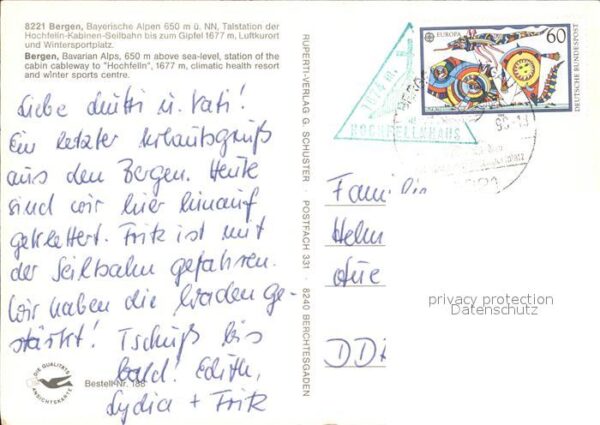 8221 Bergen, Bayerische Alpen 650 m ü. NN, Talstation der
Hochfelln-Kabinen-Seilbahn bis zum Gipfel 1677 m, Luftkurort
und Wintersportplatz.
Bergen, Bavarian Alps, 650 m above sea-level, station of the
cabin cableway to "Hochfelln", 1677 m, climatic health resort
and winter sports centre.
Liebe Mutti u. Vati!
Ein letzter Urlaubsgruß
aus den Bergen. Heute
sind wir hier hinauf
geklettert. Fritz ist mit
der Seilbahn gefahren.
Wir haben die Waden ge-
stärkt! Tschüß bis
bald! Edith,
Lydia + Fritz
DIE QUALITÄTS
ANSICHTSKARTE
Bestell-Nr. 188
RUPERTI-VERLAG G. SCHUSTER · POSTFACH 331 · 8240 BERCHTESGADEN
1674 m
HOCHFELLNHAUS
EUROPA
60
DEUTSCHE BUNDESPOST
Famili
Helm
Aue
DD
privacy protection
Datenschutz